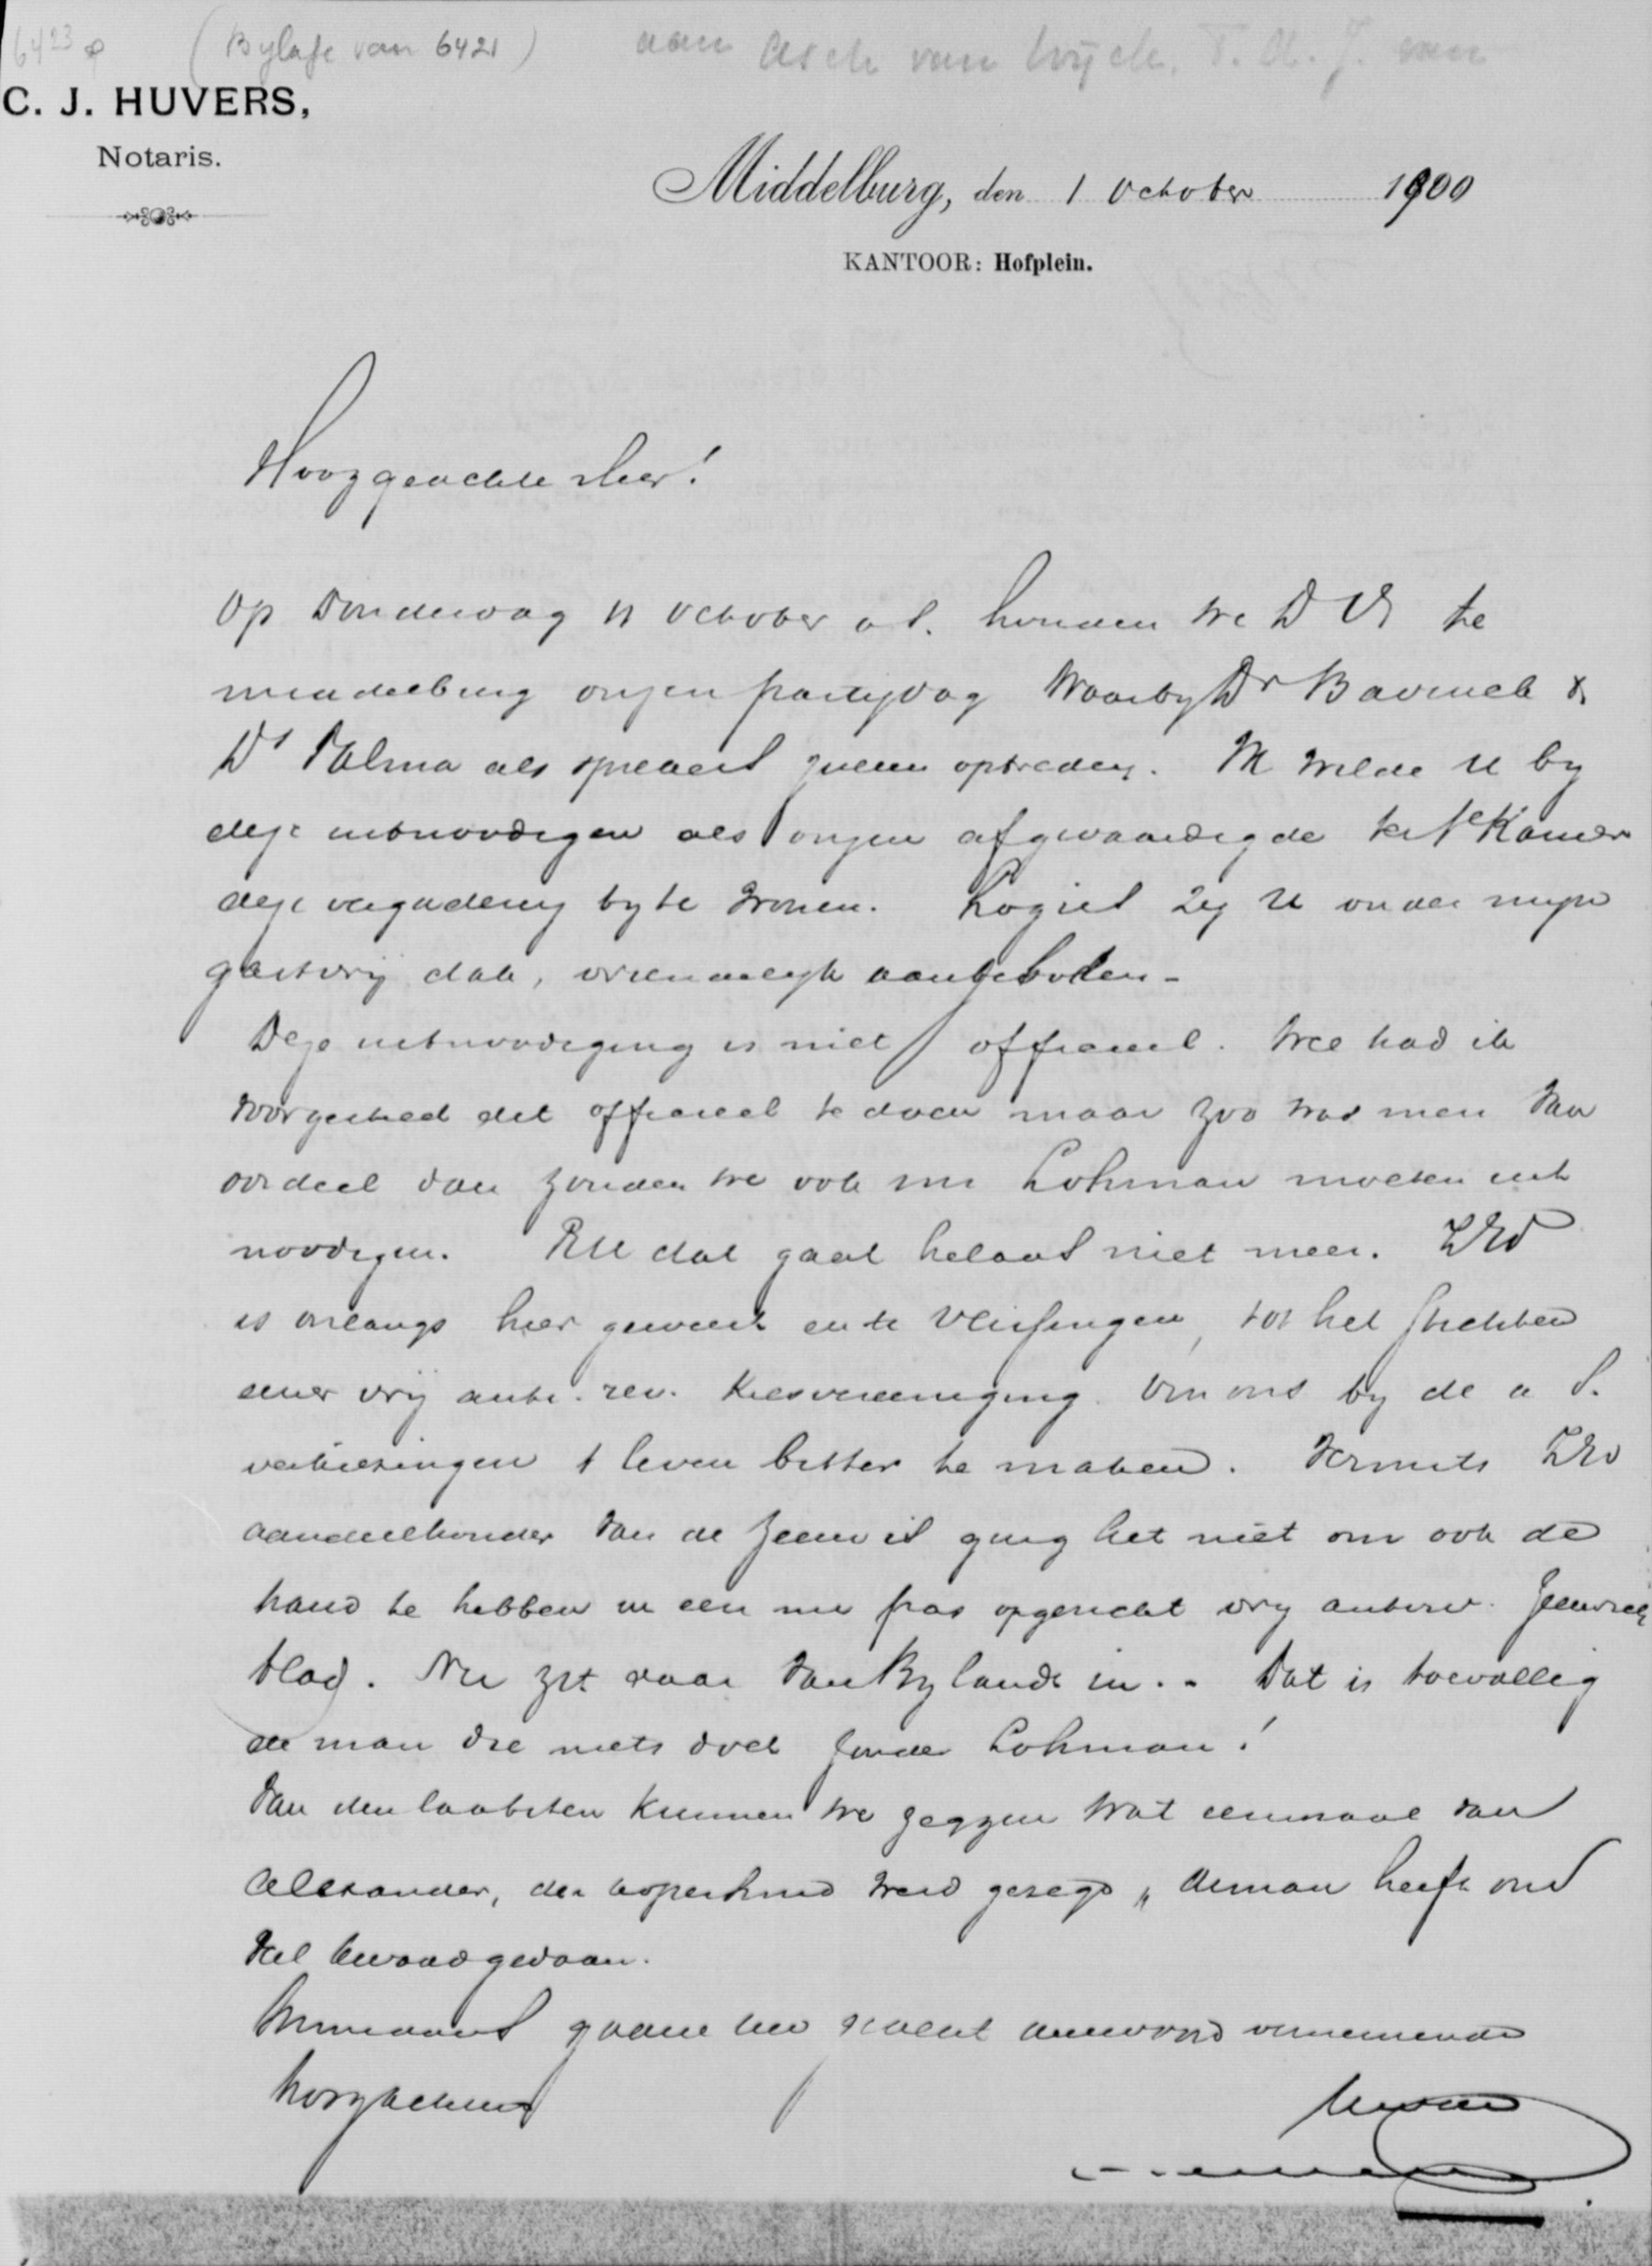 6423 (Bylage van 6421) aan Asch van Wijck, T. A. J. van
C. J. HUVERS,
Notaris.
Middelburg, den 1 October 1900
KANTOOR: Hofplein.
Hooggeachte Heer!
Op Donderdag 11 October a.s. houden we D V te
Middelburg onzen partijdag waarby Dr Bavinck &
Ds Talma als sprekers zullen optreden. Ik wilde U by
deze uitnoodigen als onzen afgevaardigde ter 1e Kamer
deze vergadering by te wonen. Logies zij U onder mijn
gastvrij dak, vriendelijk aangeboden.
Deze uitnoodiging is niet officieel. Wel had ik
voorgesteld dit officieel te doen maar zoo was men van
oordeel dan zouden we ook mr Lohman moeten uit
noodigen. En dat gaat helaas niet meer. ZEd
is onlangs hier geweest en te Vlissingen, tot het stichten
eener vrij anti. rev. Kiesvereeniging om ons by de a. s.
verkiezingen 't leven bitter te maken. Vermits ZEd
aandeelhouder van de Zeeuw is ging het niet om ook de
hand te hebben in een nu pas opgericht vrij antirev. Zeeuwsch
blad. Nu zit daar van Bylandt in.. Dat is toevallig
de man die niets doet zonder Lohman!
Van den laatsten kunnen we zeggen wat eenmaal van
Alexander, den kopersmid werd gezegd "deman heeft ons
veel kwaad gedaan.
Inmiddels gaarne uw geacht antwoord vernemende
hoogachtend